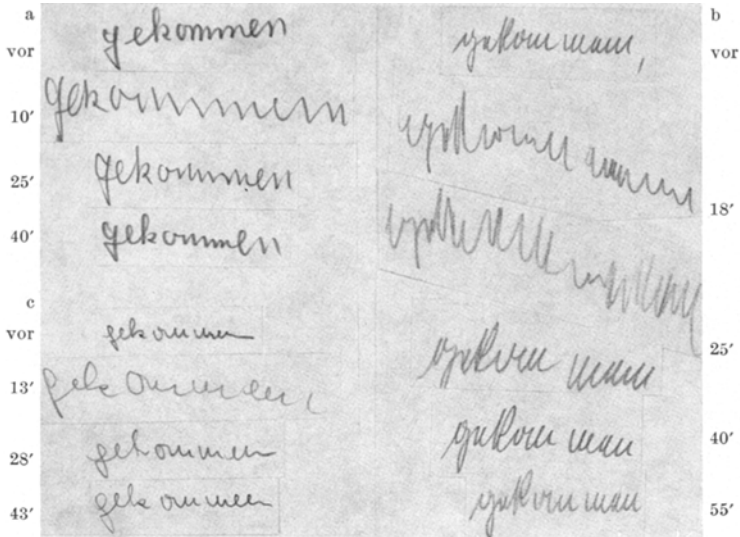 a
vor gekommen
10′ gekommen
25′ gekommen
40′ gekommen
c
vor gekommen
13′ gekommen
28′ gekommen
43′ gekommen
b
gekommen, vor
18′
25′
gekommen 40′
gekommen 55′